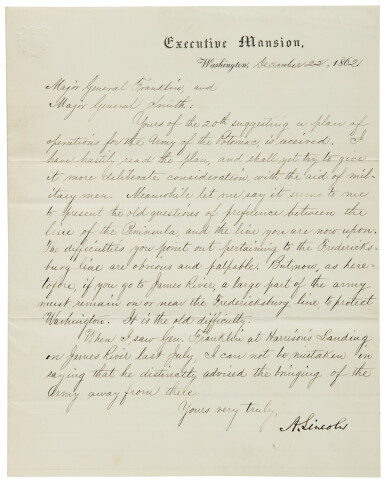 Executive Mansion,
Washington, December 22, 1862
Major General Franklin, and
Major General Smith.
Yours of the 20th suggesting a plan of
operations for the Army of the Potomac, is received. I
have hastily read the plan, and shall yet try to give
it more deliberate consideration, with the aid of mil-
itary men. Meanwhile let me say it seems to me
to present the old questions of preference between the
line of the Peninsula, and the line you are now upon.
The difficulties you point out pertaining to the Fredericks-
burg line are obvious and palpable. But now, as here-
tofore, if you go to James River, a large part of the army
must remain on or near the Fredericksburg line to protect
Washington. It is the old difficulty.
When I saw Gen. Franklin at Harrison's Landing
on James River last July, I can not be mistaken in
saying that he distinctly advised the bringing of the
Army away from there.
Yours very truly,
A. Lincoln